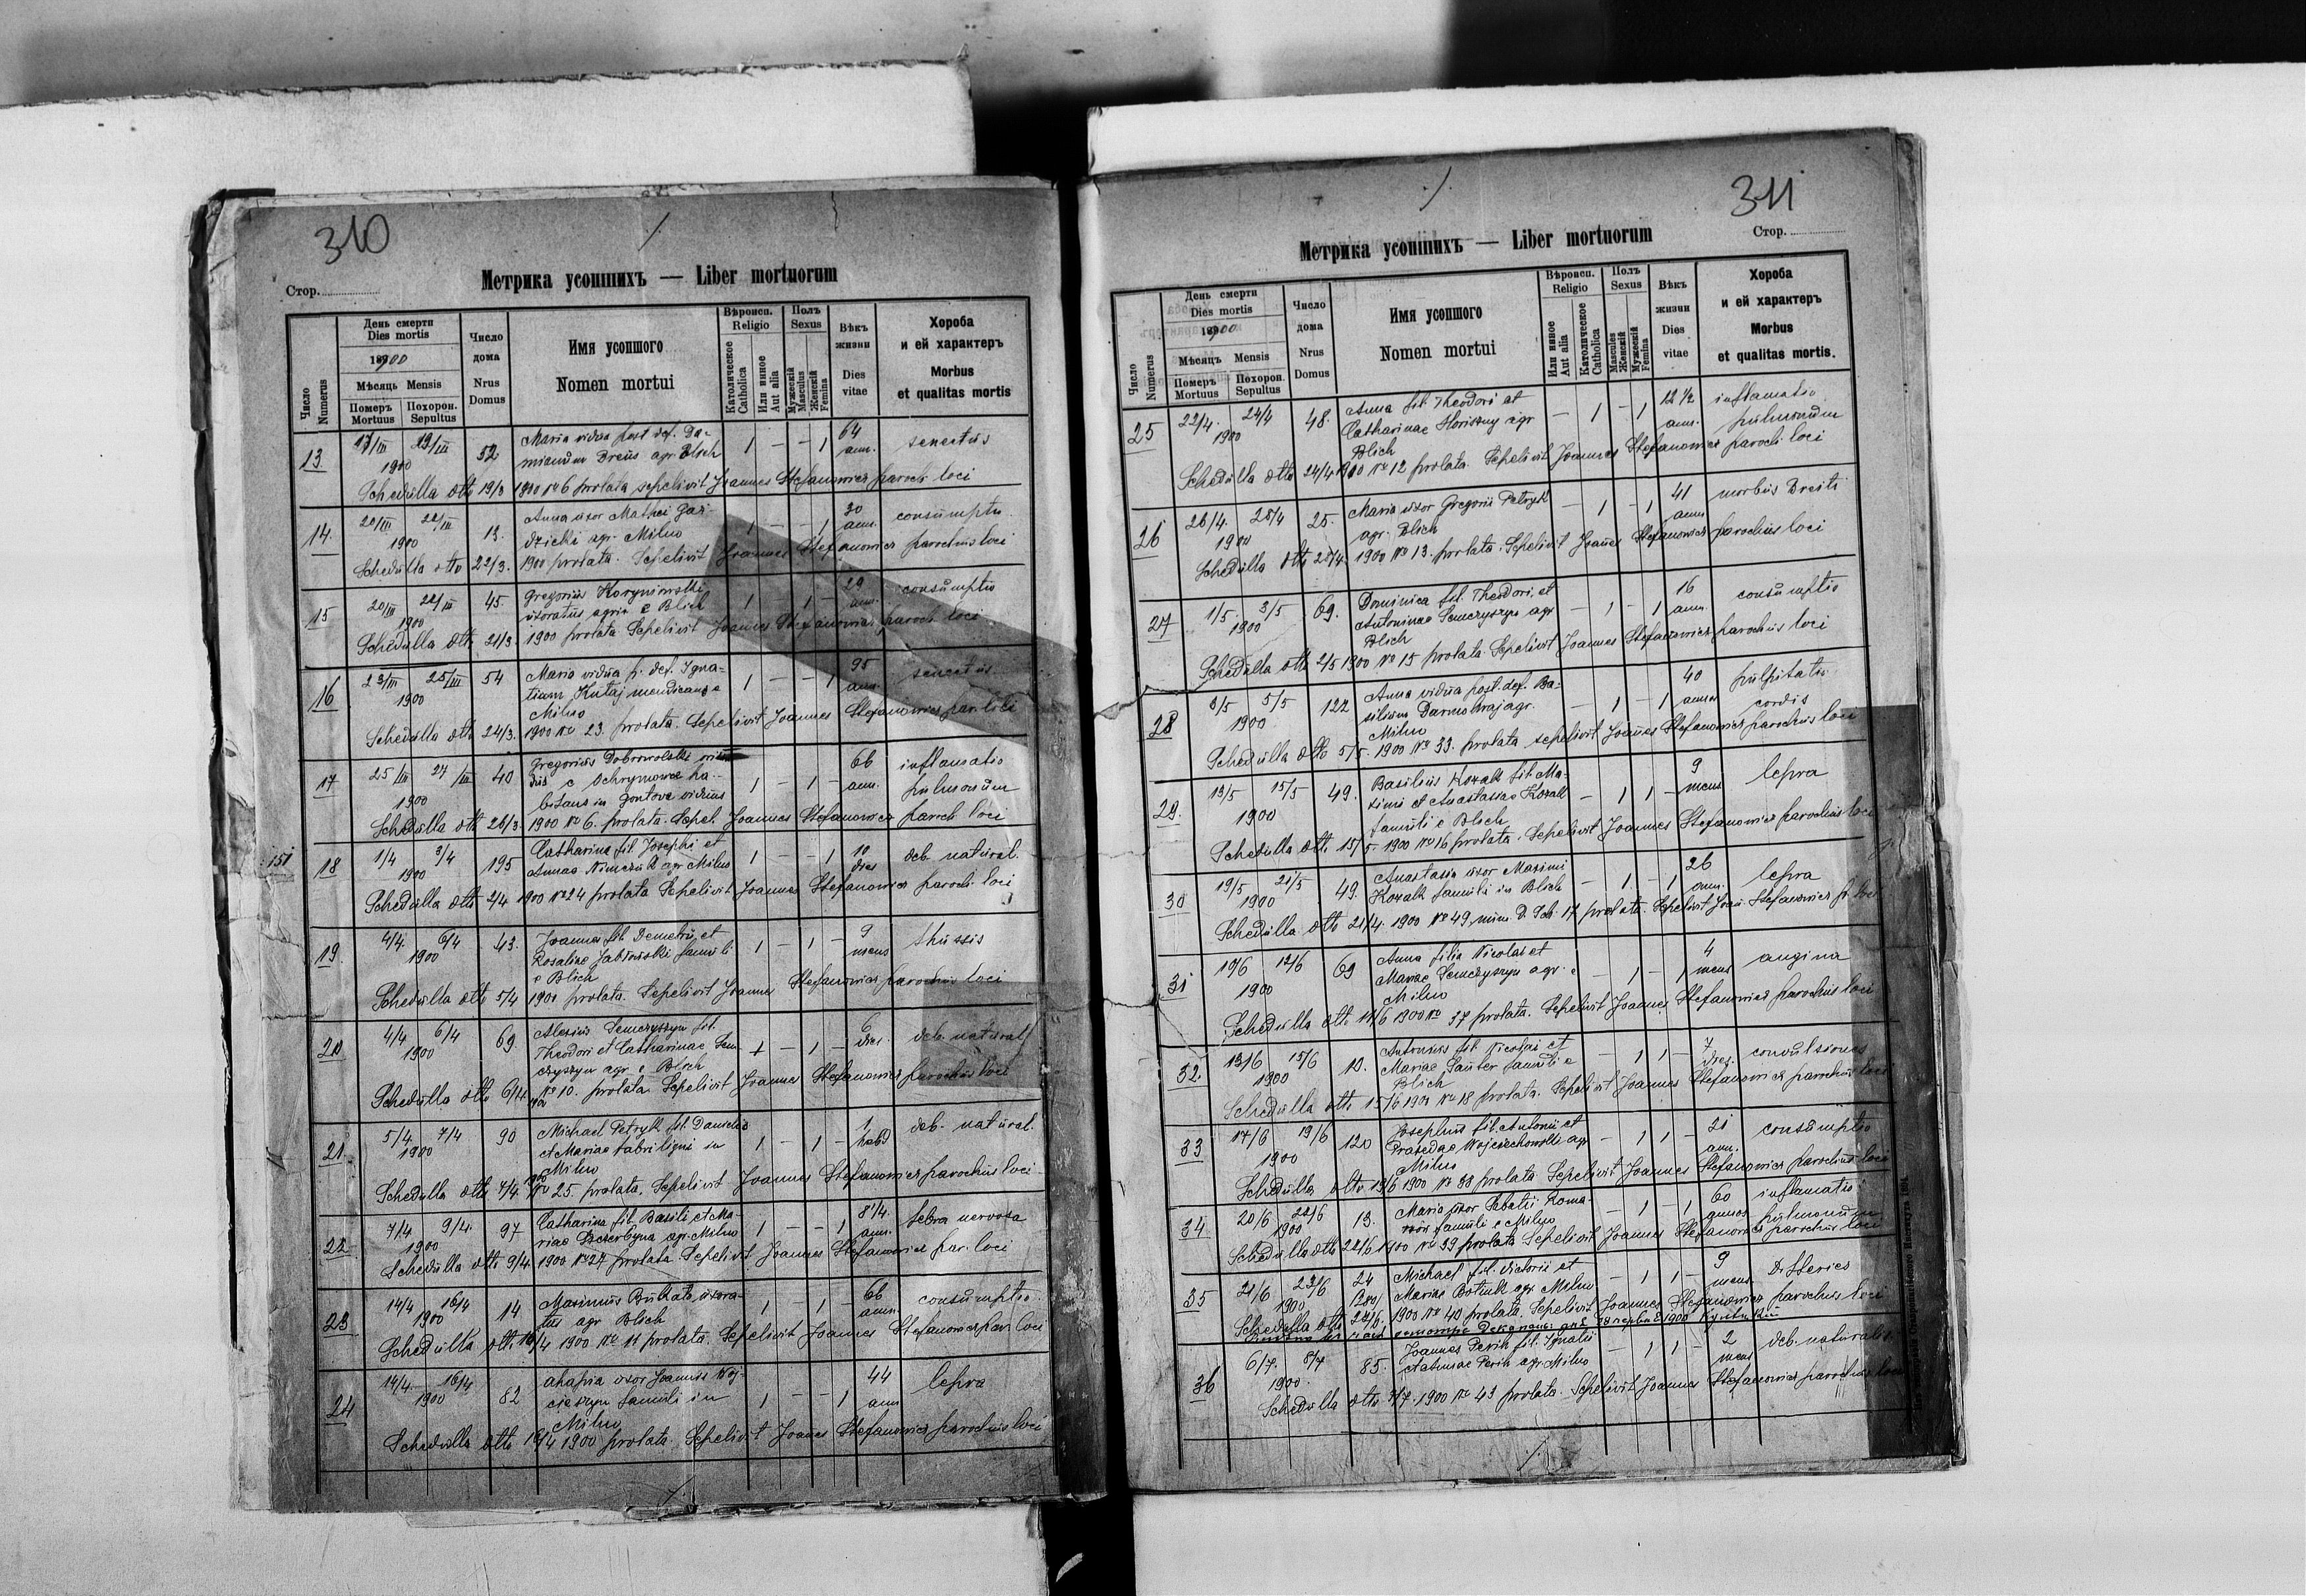 310
Стор.
Метрика усопшихъ — Liber mortuorum
Число Numerus
День смерти Dies mortis
1900
Мѣсяць Mensis
Померъ Mortuus
Похорон. Sepultus
Число дома Nrus Domus
Имя усопшого Nomen mortui
Вѣроисп. Religio
Католическое Catholica
Или инное Aut alia
Полъ Sexus
Мужескій Masculus
Женскій Femina
Вѣкъ жизни Dies vitae
Хороба и ей характеръ Morbus et qualitas mortis
13 17/III 19/III 52 Maria vidua post def. Da- 1 — — 1 64 senectus
1900 mianum Dreus agr. Blich ann.
Schedulla dtto 19/3 1900 No 6 prolata sepelivit Joannes Stefanowicz paroch loci
14. 20/III 22/III 13. Anna uxor Mathei Gar- 1 — — 1 30 consumptio
1900 dzicki agr. Milno ann.
Schedulla dtto 22/3. 1900 prolata. Sepelivit Joannes Stefanowicz parochus loci
15 20/III 22/III 45. Gregorius 1 — 1 — 29 consumptio
1900 uxoratus agric e Blich ann.
Schedulla dtto 21/3. 1900 prolata Sepelivit Joannes Stefanowicz paroch loci
16 23/III 25/III 54 Maria vidua p. def. Igna- 1 — — 1 95 senectus
1900 tium Kutaj mendicans e ann.
Milno
Schedulla dtto 24/3. 1900 No 23. prolata. Sepelivit Joannes Stefanowicz par. loci
17 25/III 27/III 40 Gregorius Dobrowolski
1900 e Ochrymowce ha- 1 — 1 — 66 inflamatio
bitans in Gontova viduus ann. pulmonum
Schedulla dtto 26/3. 1900 No 6. prolata. Sepel. Joannes Stefanowicz paroch loci
151
18 1/4 3/4 195 Catharina fil. Josephi et 1 — — 1 10 deb. natural.
1900 Annae Nimczuk agr. Milno dies
Schedulla dtto 2/4 1900 No 24 prolata Sepelivit Joannes Stefanowicz paroch. loci
19. 4/4. 6/4 43. Joannes fil. Demetrii et 1 — 1 — 9 thussis
1900 Rosaliae Jablonski famuli mens
e Blich
Schedulla dtto 5/4 1900 prolata. Sepelivit Joannes Stefanowicz parochus loci
20 4/4 6/4 69 Alexius Semczyszyn fil. 6 deb. natural
1900 Theodori et Catharinae Sem- 1 — 1 — dies
czyszyn agr. e Blich
Schedulla dtto 6/4 1900 No 10. prolata. Sepelivit Joannes Stefanowicz parochus loci
21. 5/4 7/4 90 Michael Petryk fil. Danielis 1 deb. natural.
1900 et Mariae fabri ligni in 1 — 1 — hebd
Milno
Schedulla dtto 7/4. 1900 No 25. prolata. Sepelivit Joannes Stefanowicz parochus loci
22 7/4 9/4. 97 Catharina fil. Basilii et Ma- 1 — — 1 8 1/4 febra nervosa
1900 riae Szczerbyna agr. Milno ann.
Schedulla dtto 9/4. 1900 No 27 prolata. Sepelivit Joannes Stefanowicz par. loci
23 14/4 16/4 14 Maximus Bukata uxora- 1 — 1 — 66 consumptio
1900 tus agr Blich ann.
Schedulla dtto 16/4 1900 No 11 prolata. Sepelivit Joannes Stefanowicz par. loci
24 14/4. 16/4. 82 Ahapia uxor Joannis Woj- 1 — — 1 44 lepra
1900 cieszyn famuli in ann
Milno
Schedulla dtto 16/4 1900 prolata. Sepelivit Joannes Stefanowicz parochus loci
311
Стор.
Метрика усопшихъ — Liber mortuorum
Число Numerus
День смерти Dies mortis
1900
Мѣсяць Mensis
Померъ Mortuus
Похорон. Sepultus
Число дома Nrus Domus
Имя усопшого Nomen mortui
Вѣроисп. Religio
Или инное Aut alia
Католическое Catholica
Полъ Sexus
Mascules Женскій
Мужескій Femina
Вѣкъ жизни Dies vitae
Хороба и ей характеръ Morbus et qualitas mortis.
25 22/4. 24/4 48. Anna fil. Theodori et — 1 — 1 12 1/2 inflamatio
1900 Catharinae Horiszny agr ann. pulmonum
Blich
Schedulla dtto 24/4 1900 No 12 prolata. Sepelivit Joannes Stefanowicz paroch. loci
26 26/4. 28/4 25. Maria uxor Gregorii Petryk — 1 — 1 41 morbus Breiti
1900 agr. Blich ann
Schedulla dtto 28/4. 1900 No 13. prolata. Sepelivit Joannes Stefanowicz parochus loci
27 1/5 3/5 69. Dominica fil. Theodori et — 1 — 1 16 consumptio
1900 Antoninae Semczyszyn agr ann.
Blich
Schedulla dtto 2/5 1900 No 15 prolata. Sepelivit Joannes Stefanowicz parochus loci
28 3/5 5/5 122 Anna vidua post. def. Ba- — 1 — 1 40 pulpitatio
1900 silium Darmohraj agr. annos cordis
Milno
Schedulla dtto 5/5. 1900 No 33. prolata sepelivit Joannes Stefanowicz parochus loci
29. 13/5 15/5 49. Basilius Kozak fil. Ma- — 1 1 — 9 lepra
1900 ximi et Anastasiae Kozak mens
famuli e Blich
Schedulla dtto 15/5. 1900 No 16 prolata. Sepelivit Joannes Stefanowicz parochus loci
30 19/5 21/5 49. Anastasia uxor Maximi — 1 — 1 26 lepra
1900 Kozak famuli in Blich ann.
Schedulla dtto 21/4. 1900 No 49 17 prolata. Sepelivit Joan. Stefanowicz p. loci
31 10/6 12/6 69 Anna filia Nicolai et — 1 — 1 4 angina
1900 Mariae Semczyszyn agr. e mens
Milno
Schedulla dtto 11/6 1900 No 37 prolata. Sepelivit Joannes Stefanowicz parochus loci
32. 13/6 15/6 10. Antonius fil. Nicolai et — 1 1 — 7 convulsiones
1900 Mariae Sauter famuli e dies.
Blich
Schedulla dtto 15/6 1900 No 18 prolata. Sepelivit Joannes Stefanowicz parochus loci
33 17/6 19/6 120 Josephus fil. Antonii et — 1 1 — 21 consumptio
1900 Praxedae Wojciechowski agr ann.
Milno
Schedulla dtto 19/6 1900 No 38 prolata. Sepelivit Joannes Stefanowicz parochus loci
34 20/6 22/6 13. Maria uxor Sabatii Roma- — 1 — 1 60 inflamatio
1900 famuli e Milno annos pulmonum
Schedulla dtto 22/6 1900 No 39 prolata Sepelivit Joannes Stefanowicz parochus loci
35 21/6 23/6 24 Michael fil. Victorii et — 1 1 — 9 Difteries
1900 Mariae agr. Milno mens
Schedulla dtto 22/6. 1900 No 40 prolata. Sepelivit Joannes Stefanowicz parochus loci
36 6/7. 8/7 85. Joannes Perih fil. Ignatii — 1 1 — 2 deb. naturalis
1900. Perih agr. Milno mens
Schedulla dtto 7/7. 1900 No 43 prolata. Sepelivit Joannes Stefanowicz parochus loci